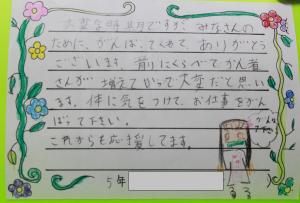 大変な時期ですが、みなさんの
ために、がんばってくれて、ありがとう
ございます。前にくらべてかん者
さんが増えてきって大変だと思い
ます。体に気をつけて、お仕事をがん
ばって下さい。
これからも応援してます。
5年